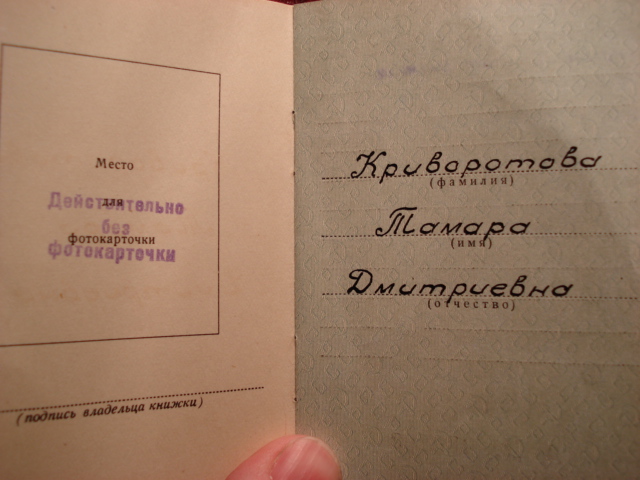 Место
для
фотокарточки
Действительно
без
фотокарточки
(подпись владельца книжки)
Криворотова
(фамилия)
Тамара
(имя)
Дмитриевна
(отчество)